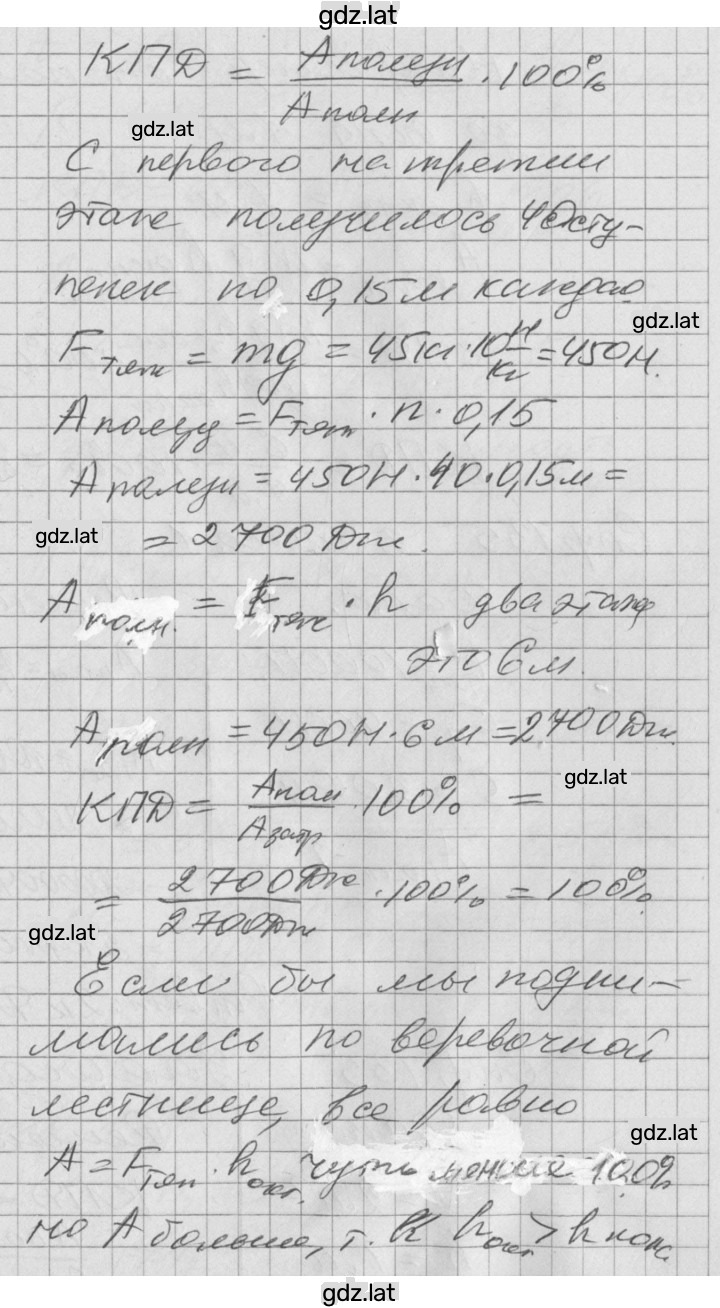 gdz.lat
КПД = Аполезн / Аполн · 100%
gdz.lat
С первого на третий
этаж получилось 40 сту-
пенек по 0,15м каждая
gdz.lat
Fтяж = mg = 45кг · 10 Н/кг = 450Н.
Аполезн = Fтяж · n · 0,15
Аполезн = 450Н · 40 · 0,15м =
gdz.lat
= 2700 Дж.
Аполн. = Fтяж · h два этажа
это 6м.
Аполн = 450Н · 6м = 2700Дж.
gdz.lat
КПД = Апол / Азатр · 100% =
= 2700Дж / 2700Дж · 100% = 100%.
gdz.lat
Если бы мы подни-
мались по веревочной
лестнице, все равно
gdz.lat
А = Fтяж · h чуть меньше 100%
но А больше, т. к h > h
gdz.lat